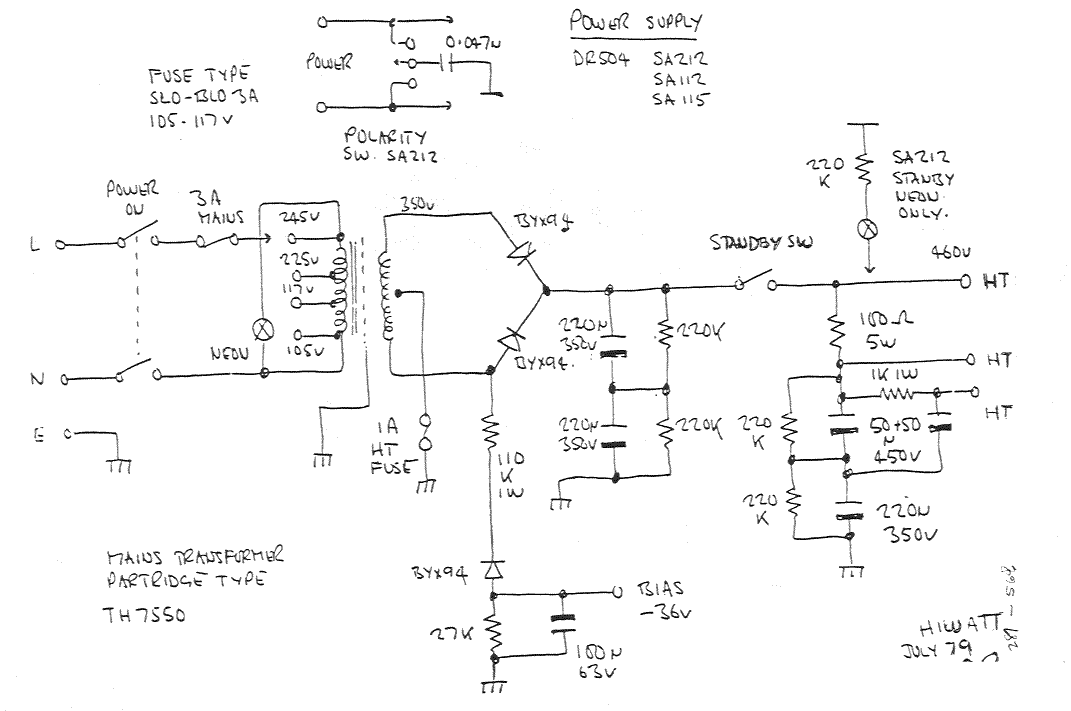 POWER SUPPLY
DR504 SA212
SA112
SA115
0.047µ
POWER
FUSE TYPE
SLO-BLO 3A
105-117V
POLARITY
SW. SA212
220
K
SA212
STANBY
NEON
ONLY.
POWER
ON
3A
MAINS
350V
BYX94
STANDBY SW
460V
L
245V
225V
117V
105V
NEON
HT
220µ
350V
220K
BYX94.
100Ω
5W
HT
N
1K 1W
HT
E
1A
HT
FUSE
110
K
1W
220µ
350V
220K
220
K
50+50
µ
450V
220
K
220µ
350V
MAINS TRANSFORMER
PARTRIDGE TYPE
TH7550
BYX94
BIAS
-36V
27K
100µ
63V
HIWATT
JULY 79